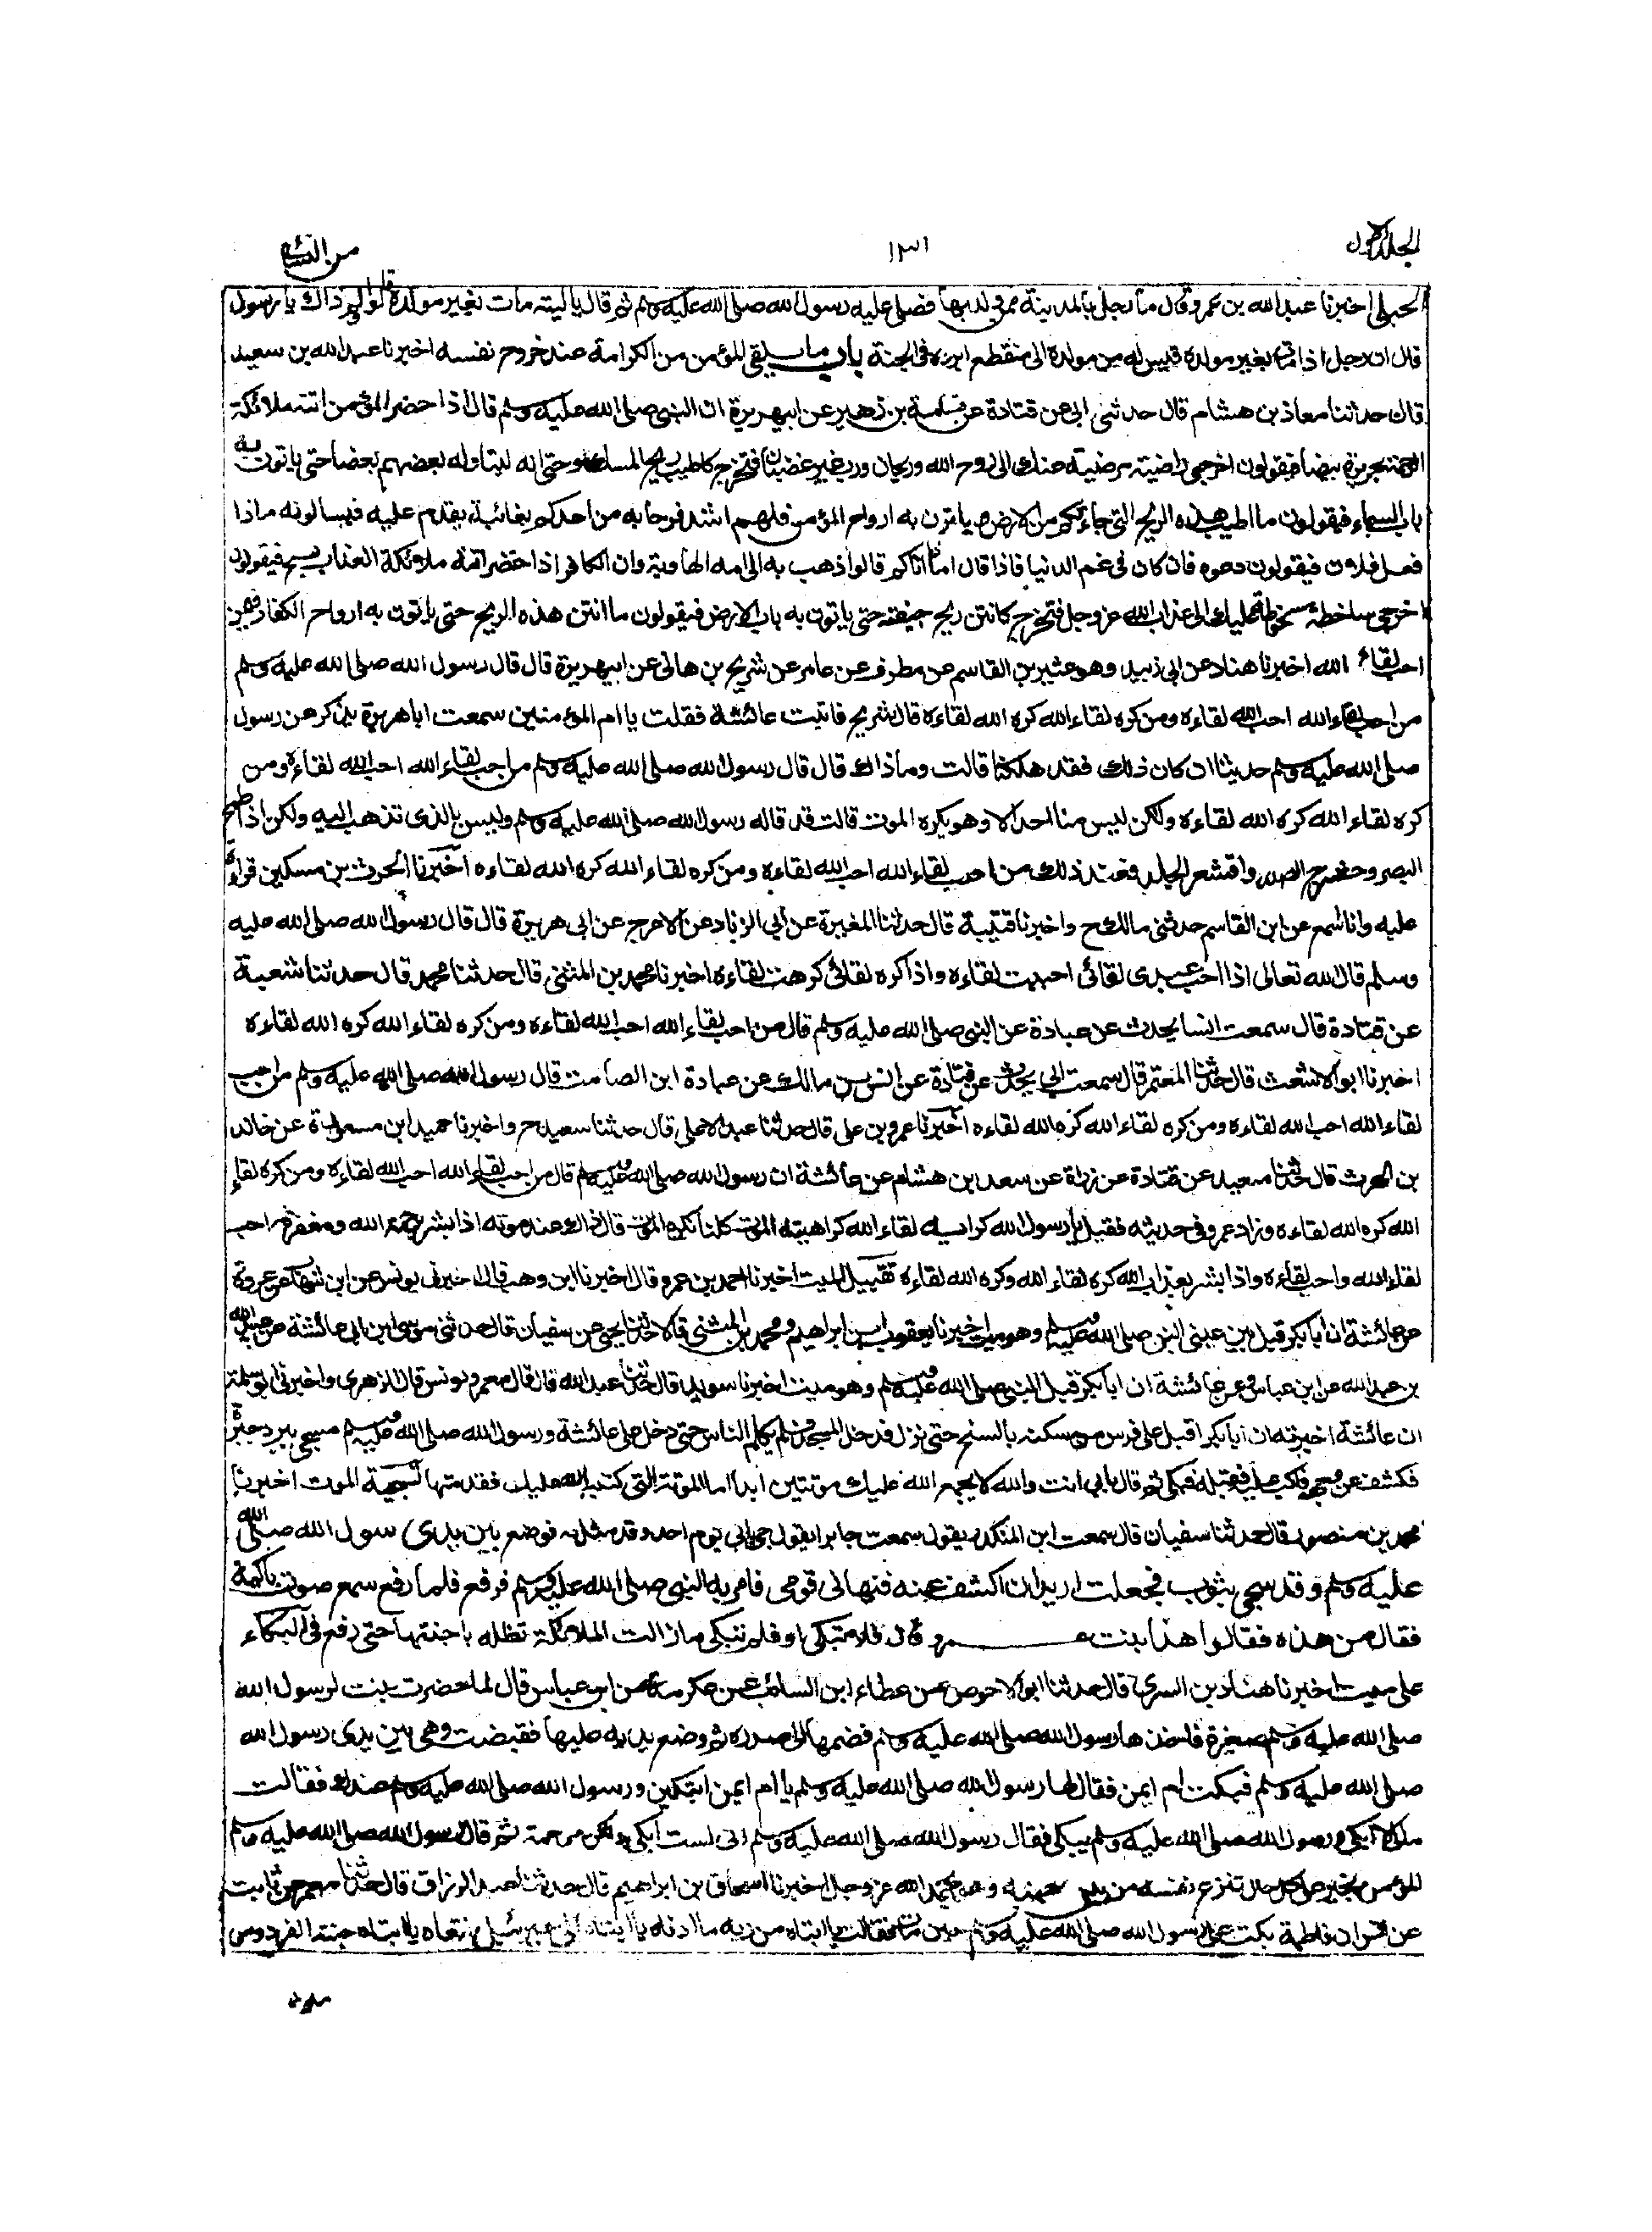 الجلد الاول
١٣١
من النسائى
الحبلى اخبرنا عبد الله بن عمرو قال مات رجل بالمدينة ممن ولد بها فصلى عليه رسول الله صلى الله عليه وسلم ثم قال ياليته مات بغير مولده قالوا ولم ذاك يا رسول
قال ان الرجل اذا مات بغير مولده قيس له من مولده الى منقطع اثره فى الجنة باب ما يلقى المؤمن من الكرامة عند خروج نفسه اخبرنا عبد الله بن سعيد
قال حدثنا معاذ بن هشام قال حدثنى ابى عن قتادة عن قسامة بن زهير عن ابى هريرة ان النبى صلى الله عليه وسلم قال اذا حضر المؤمن اتته ملائكة
الرحمة بحريرة بيضاء فيقولون اخرجى راضية مرضية عنك الى روح الله وريحان ورب غير غضبان فتخرج كاطيب ريح المسك حتى انه ليناوله بعضهم بعضا حتى ياتون به
باب السماء فيقولون ما اطيب هذه الريح التى جاءتكم من الارض فياتون به ارواح المؤمنين فلهم اشد فرحا به من احدكم بغائبه يقدم عليه فيسالونه ماذا
فعل فلان فيقولون دعوه فانه كان فى غم الدنيا فاذا قال اما اتاكم قالوا ذهب به الى امه الهاوية وان الكافر اذا احتضر اتته ملائكة العذاب بمسح فيقولون
اخرجى ساخطة مسخوطا عليك الى عذاب الله عز وجل فتخرج كانتن ريح جيفة حتى ياتون به باب الارض فيقولون ما انتن هذه الريح حتى ياتون به ارواح الكفار فيمن
احب لقاء الله اخبرنا هناد عن ابى زبيد وهو عبثر بن القاسم عن مطرف عن عامر عن شريح بن هانى عن ابى هريرة قال قال رسول الله صلى الله عليه وسلم
من احب لقاء الله احب الله لقاءه ومن كره لقاء الله كره الله لقاءه قال شريح فاتيت عائشة فقلت يا ام المؤمنين سمعت ابا هريرة يذكر عن رسول
صلى الله عليه وسلم حديثا ان كان ذلك فقد هلكنا قالت وما ذاك قال قال رسول الله صلى الله عليه وسلم من احب لقاء الله احب الله لقاءه ومن
كره لقاء الله كره الله لقاءه ولكن ليس منا احد الا وهو يكره الموت قالت قد قاله رسول الله صلى الله عليه وسلم وليس بالذى تذهب اليه ولكن اذا طمح
البصر وحشرج الصدر واقشعر الجلد فعند ذلك من احب لقاء الله احب الله لقاءه ومن كره لقاء الله كره الله لقاءه اخبرنا الحرث بن مسكين قراءة
عليه وانا اسمع عن ابن القاسم حدثنى مالك ح واخبرنا قتيبة قال حدثنا المغيرة عن ابى الزناد عن الاعرج عن ابى هريرة قال قال رسول الله صلى الله عليه
وسلم قال الله تعالى اذا احب عبدى لقائى احببت لقاءه واذا كره لقائى كرهت لقاءه اخبرنا محمد بن المثنى قال حدثنا محمد قال حدثنا شعبة
عن قتادة قال سمعت انسا يحدث عن عبادة عن النبى صلى الله عليه وسلم قال من احب لقاء الله احب الله لقاءه ومن كره لقاء الله كره الله لقاءه
اخبرنا ابو الاشعث قال حدثنا المعتمر قال سمعت ابى يحدث عن قتادة عن انس بن مالك عن عبادة ابن الصامت قال رسول الله صلى الله عليه وسلم من احب
لقاء الله احب الله لقاءه ومن كره لقاء الله كره الله لقاءه اخبرنا عمرو بن على قال حدثنا عبد الاعلى قال حدثنا سعيد ح واخبرنا حميد ابن مسعدة عن خالد
بن الحرث قال حدثنا سعيد عن قتادة عن زرارة عن سعد بن هشام عن عائشة ان رسول الله صلى الله عليه وسلم قال من احب لقاء الله احب الله لقاءه ومن كره لقاء
الله كره الله لقاءه وزاد عمرو فى حديثه فقيل يا رسول الله كراهية لقاء الله كراهية الموت كلنا نكره الموت قال ذاك عند موته اذا بشر برحمة الله ومغفرته احب
لقاء الله واحب لقاءه واذا بشر بعذاب الله كره لقاء الله وكره الله لقاءه تقبيل الميت اخبرنا احمد بن عمرو قال اخبرنا ابن وهب قال اخبرنى يونس عن ابن شهاب عن عروة
عن عائشة ان ابا بكر قبل بين عينى النبى صلى الله عليه وسلم وهو ميت اخبرنا يعقوب ابن ابراهيم ومحمد بن المثنى قالا حدثنا يحيى عن سفيان قال حدثنى موسى ابن ابى عائشة عن عبيد الله
بن عبد الله عن ابن عباس وعن عائشة ان ابا بكر قبل النبى صلى الله عليه وسلم وهو ميت اخبرنا سويد قال حدثنا عبد الله قال قال معمر ويونس قال الزهرى واخبرنى ابو سلمة
ان عائشة اخبرته ان ابا بكر اقبل على فرس من مسكنه بالسنح حتى نزل فدخل المسجد فلم يكلم الناس حتى دخل على عائشة ورسول الله صلى الله عليه وسلم مسجى ببرد حبرة
فكشف عن وجهه فاكب عليه فقبله فبكى ثم قال بابى انت والله لا يجمع الله عليك موتتين ابدا اما الموتة التى كتب الله عليك فقد متها تسجية الموت اخبرنا
محمد بن منصور قال حدثنا سفيان قال سمعت ابن المنكدر يقول سمعت جابرا يقول جئ بابى يوم احد وقد مثل به فوضع بين يدى رسول الله صلى الله
عليه وسلم وقد سجى بثوب فجعلت اريد ان اكشف عنه فنهانى قومى فامر به النبى صلى الله عليه وسلم فرفع فلما رفع سمع صوت باكية
فقال من هذه فقالوا هذا بنت عمرو قال فلا تبكى او فلم تبكى ما زالت الملائكة تظله باجنحتها حتى رفع فى البكاء
على ميت اخبرنا هناد بن السرى قال حدثنا ابو الاحوص عن عطاء ابن السائب عن عكرمة عن ابن عباس قال لما حضرت بنت لرسول الله
صلى الله عليه وسلم صغيرة فاخذها رسول الله صلى الله عليه وسلم فضمها الى صدره ثم وضع يديه عليها فقبضت وهى بين يدى رسول الله
صلى الله عليه وسلم فبكت ام ايمن فقال لها رسول الله صلى الله عليه وسلم يا ام ايمن اتبكين ورسول الله صلى الله عليه وسلم عندك فقالت
مالى لا ابكى ورسول الله صلى الله عليه وسلم يبكى فقال رسول الله صلى الله عليه وسلم انى لست ابكى ولكن رحمة ثم قال رسول الله صلى الله عليه وسلم
المؤمن بخير على كل حال تنزع نفسه من بين جنبيه وهو يحمد الله عز وجل اخبرنا اسحاق بن ابراهيم قال حدثنا عبد الرزاق قال حدثنا معمر عن ثابت
عن انس ان فاطمة بكت على رسول الله صلى الله عليه وسلم حين مات فقالت يا ابتاه من ربه ما ادناه يا ابتاه الى جبرئيل ننعاه يا ابتاه جنة الفردوس